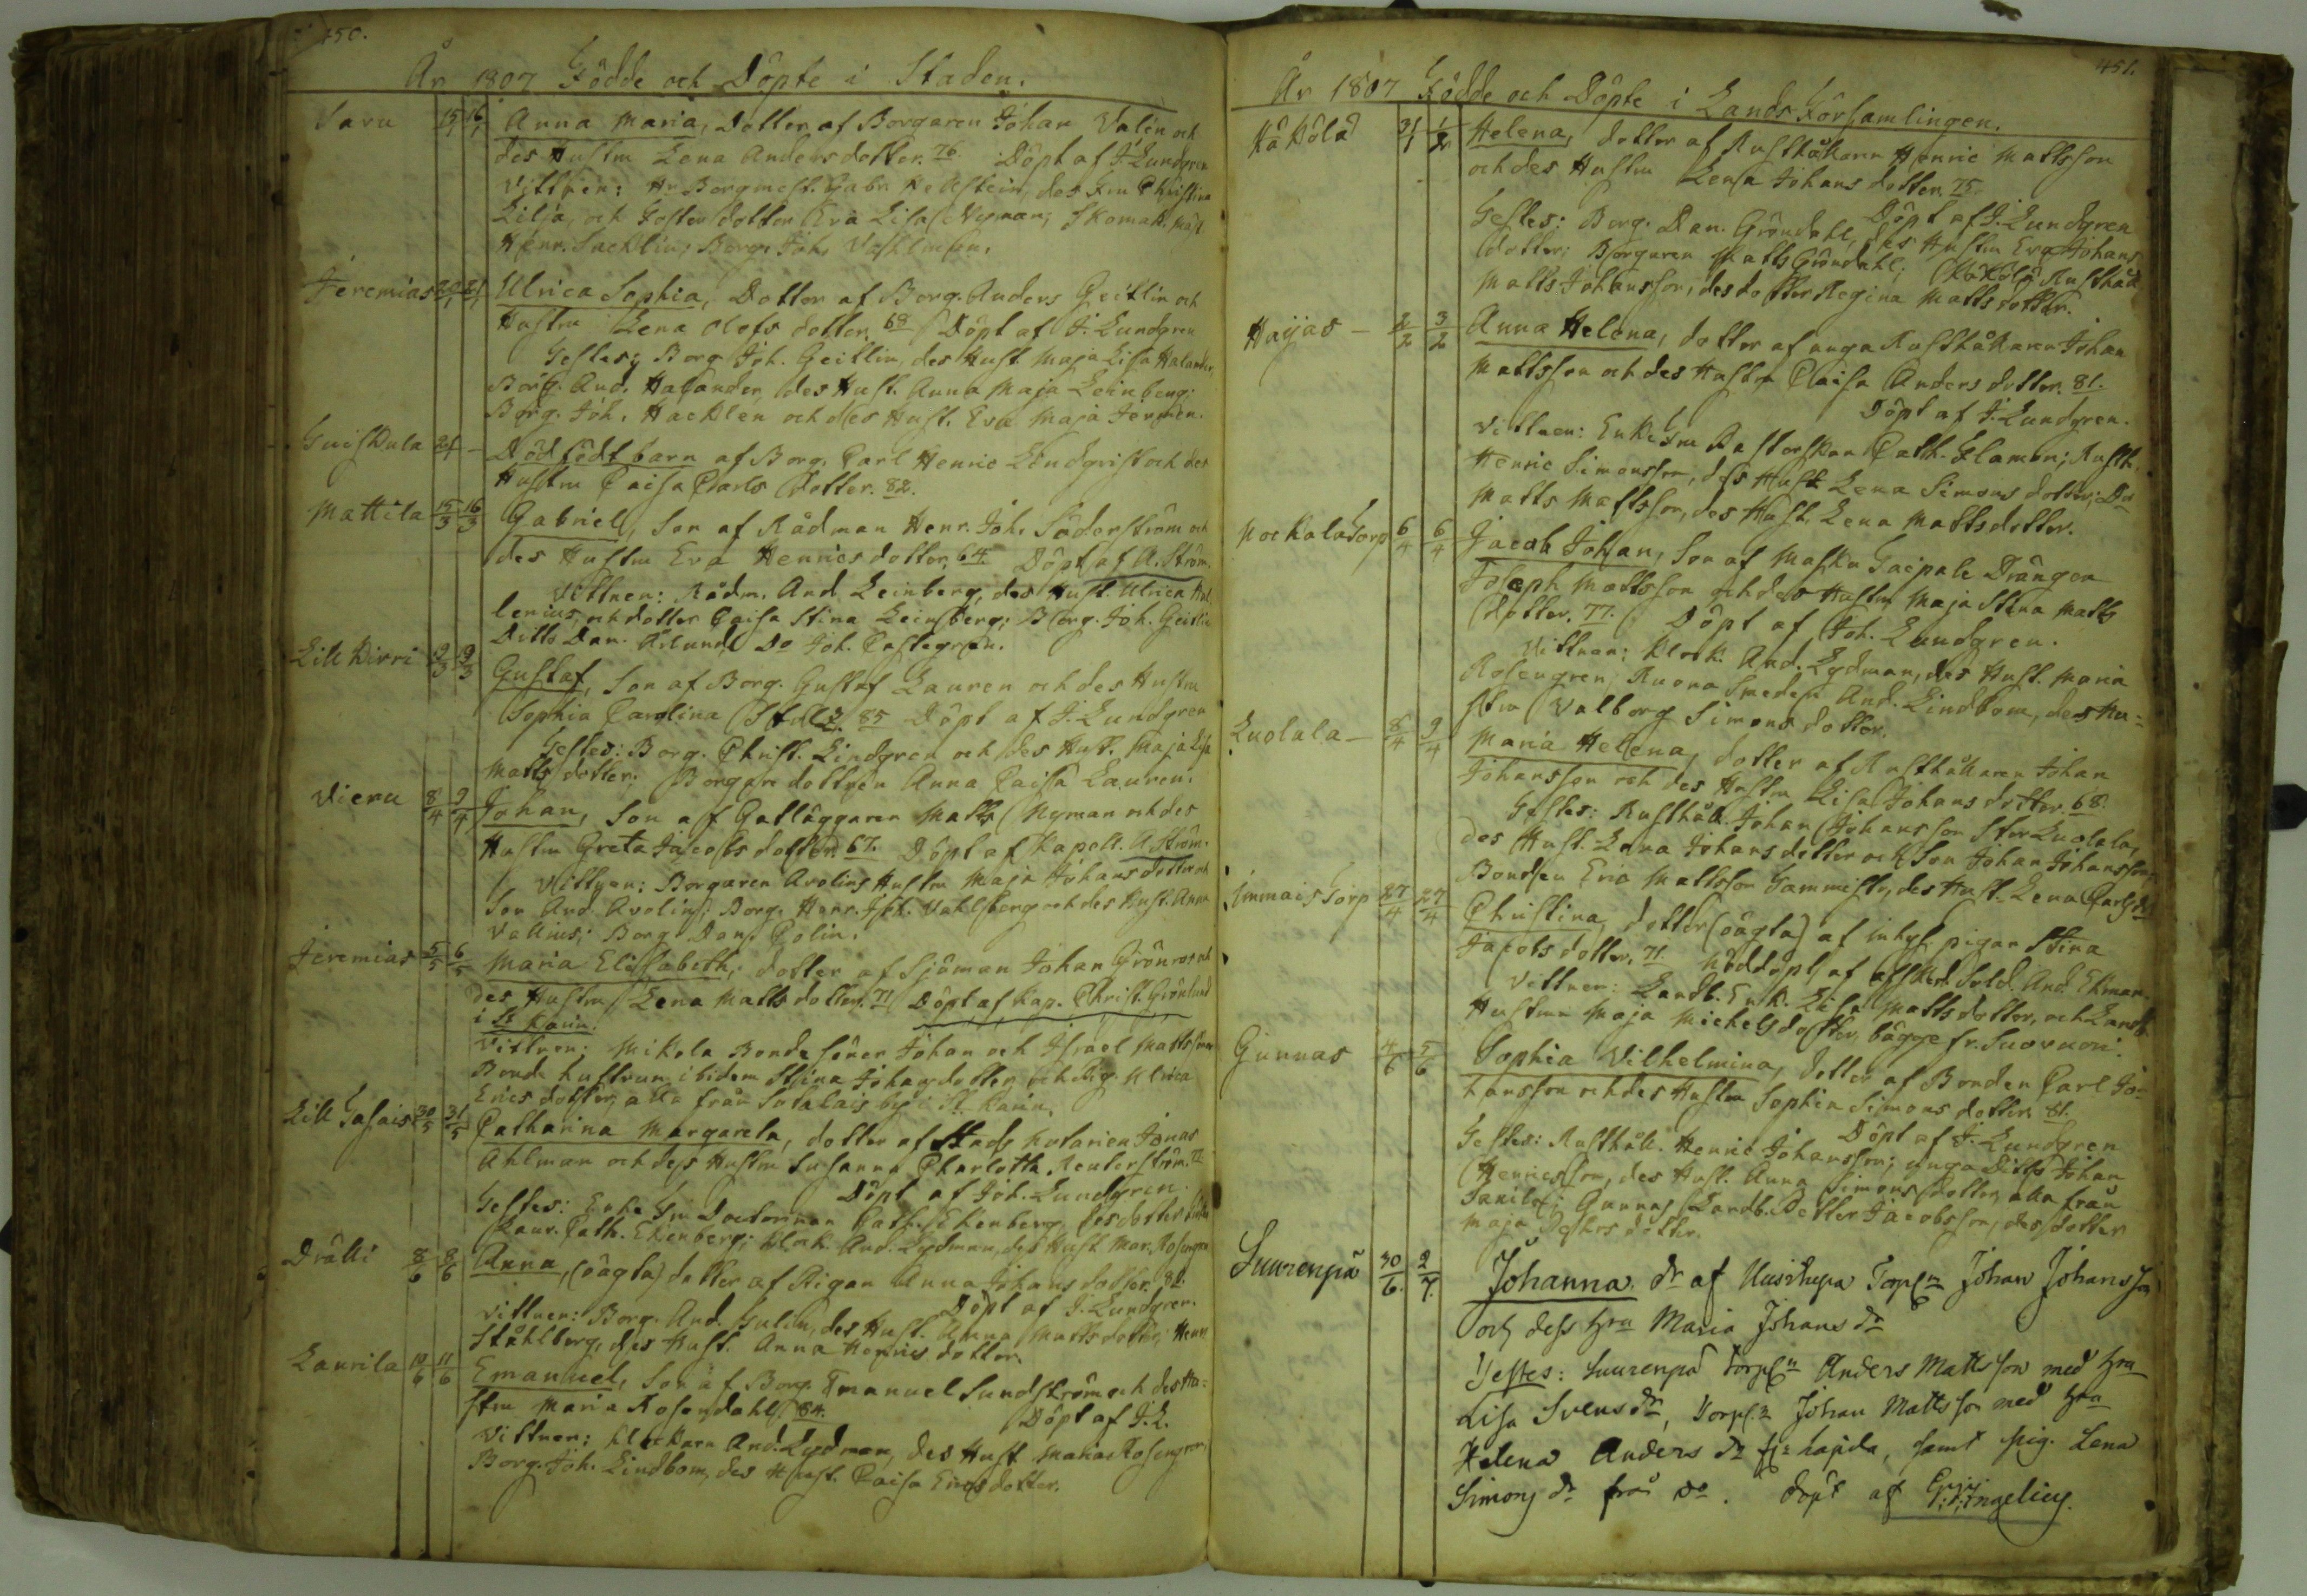 450.
År 1807 Födde och Döpte i Staden.
Saru 15/1 16/1 Anna Maria, Dotter af Borgaren Johan Valin och
des Hustru Lena Anders dotter. 76 Döpt af J. Lundgren
Vittnen: Hr Borgmest. Gabr. Hellstein, des Fru Christina
Lilja, och Foster dotter Eva Lisa Nyman; Skomak. Mäst.
Henr. Sacklin; Borg. Joh. Vahlman.
Jeremias 20/1 21/1 Ulrica Sophia, Dotter af Borg. Anders Geitlin och
Hustru Lena Olofs dotter. 68 Döpt af J. Lundgren
Testes; Borg. Joh. Geitlin, des Hust. Maja Lisa Halander,
Borg. And. Halander, des Hust. Anna Maja Leinberg;
Borg. Joh. Hacklen och des Hust. Eva Maja
24/1 – Dödfödt barn af Borg. Carl Henric Lindqvist och des
Hustru Caisa Carls dotter. 82.
Mattila 15/3 16/3 Gabriel, Son af Rådman Henr. Joh. Söderström och
des Hustru Eva Henrics dotter, 64. Döpt af A. Ström.
Vittnen: Rådm. And. Leinberg, des Hust. Ulrica
lenius, och dotter Caisa Stina Leinberg; Borg. Joh. Geitlin
Ditto Dan. Do Joh. Castegren.
Lill Kirri 9/3 Gustaf, Son af Borg. Gustaf Lauren och des Hustru
Sophia Carolina 85 Döpt af J. Lundgren
Testes: Borg. Christ. Lindgren och des Hust. Maja Lisa
Matts dotter; Borgare dottren Anna Caisa Lauren.
Vieru 8/4 9/4 Johan, Son af Gatläggaren Matts Nyman och des
Hustru Greta Jacobs dotter. 67. Döpt af Kapell. A. Ström.
Vittnen: Borgaren Avelins Hustru Maja Johans dotter och
Son And. Avelin; Borg. Henr. Joh. Vahlberg och des Hust. Anna
Vallius; Borg. Dan. Polin.
Jeremias 5/5 6/5 Maria Elisabeth, dotter af Sjöman Johan Grönroos och
des Hustru Lena Matts dotter. 71 Döpt af Kap. Christ. Grönlund
i St Karin.
Vittnen; Mikola Bonde söner Johan och Israel Matts söner
Bonde hustrun ibidem Stina Johans dotter, och Pig. Ulrica
Erics dotter, alla från by i St. Karin.
Lill 30/5 31/5 Catharina Margareta, dotter af Stads Notarien Jonas
Ahlman och dess Hustru Susanna Charlotta Reuterström. 72
Döpt af Joh. Lundgren.
Testes: Enke Fru Doctorinnan Cath. Ekenberg, des dotter
Laur. Cath. Ekenberg; Klock. And. Lydman, des Hust. Mar. Rosengren
Drälli 8/6 8/6 Anna, (oägta) dotter af Pigan Anna Johans dotter. 82.
Döpt af J. Lundgren.
Vittnen: Borg. And. Hulin, des Hust. Anna Matts dotter; Henr.
Ståhlberg, des Hust. Anna Henrics dotter.
Laurila 10/6 11/6 Emanuel, Son af Borg. Emanuel Sundström och des Hu=
stru Maria Rosendahl. 84. Döpt af J. L.
Vittnen; Klockaren And. Lydman, des Hust. Maria Rosengren,
Borg. Joh. Lindbom, des Hust. Caisa Erics dotter.
451.
År 1807 Födde och Döpte i Lands Församlingen.
Käkölä 31/1 1/2 Helena, dotter af Rusthållaren Henric Mattsson
och des Hustru Lena Johans dotter. 75
Döpt af J. Lundgren
Testes; Borg. Dan. Gröndahl, des Hustru Eva Johans
dotter; Borgaren Matts Gröndahl; Käkölä Rusthåll.
Matts Johansson, des dotter Regina Matts dotter.
Haijas – 2/2 3/2 Anna Helena, dotter af unga Rusthållaren Johan
Mattsson och des Hustru Caisa Anders dotter. 81.
Döpt af J. Lundgren.
Vittnen: Enke Fru Pastorskan Cath. Flaman; Rusth.
Henric Simonsson, dess Hust. Lena Simons dotter; Do
Matts Mattsson, des Hust. Lena Matts dotter.
6/4 6/4 Jacob Johan, Son af Masku Taipale Drängen
Joseph Mattsson och des Hustru Maja Stina Matts
dotter. 77. Döpt af Joh. Lundgren.
Vittnen; Klock. And. Lydman, des Hust. Maria
Rosengren; Ruona Smeden And. Lindbom, des Hu=
stru Valborg Simons dotter.
Luolala – 8/4 9/4 Maria Helena, dotter af Rusthållaren Johan
Johansson och des Hustru Lisa Johans dotter. 68.
Testes: Rusthåll. Johan Johansson Stor Luolala,
des Hust. Lena Johans dotter och Son Johan Johansson;
Bonden Eric Mattsson Tammisto, des Hust. Lena Carls dr
Immais Torp 27/4 27/4 Christina, dotter (oägta) af inhys pigan Stina
Jacobs dotter. 71. Nöddöpt af afsked. Sold. And. Ekman.
Vittnen: Landb. Enk. Lisa Matts dotter, och Landb.
Hustrun Maja Michels dotter, bägge fr. Suovuori.
Gunnas 4/6 5/6 Sophia Vilhelmina, dotter af Bonden Carl Jo=
hansson och des Hustru Sophia Simons dotter. 81.
Döpt af J. Lundgren
Testes: Rusthåll. Henric Johansson; unga Ditto Johan
Henricsson, des Hust. Anna Simons dotter, alla från
Gunnas Landb. Petter Jacobsson, des dotter
Maja Petters dotter.
Suurenpä 30/6. 2/7. Johanna. Dr af Uusikupa Torpn Johan Johansson
och dess Hru Maria Johans dr
Testes: Suurenpä Torpn Anders Mattsson med Hru
Lisa Svens dr, Torpn Johan Mattsson med Hru
Helena Anders dr fr hapida, samt Pig. Lena
Simons dr från Do. Döpt af Engelius.